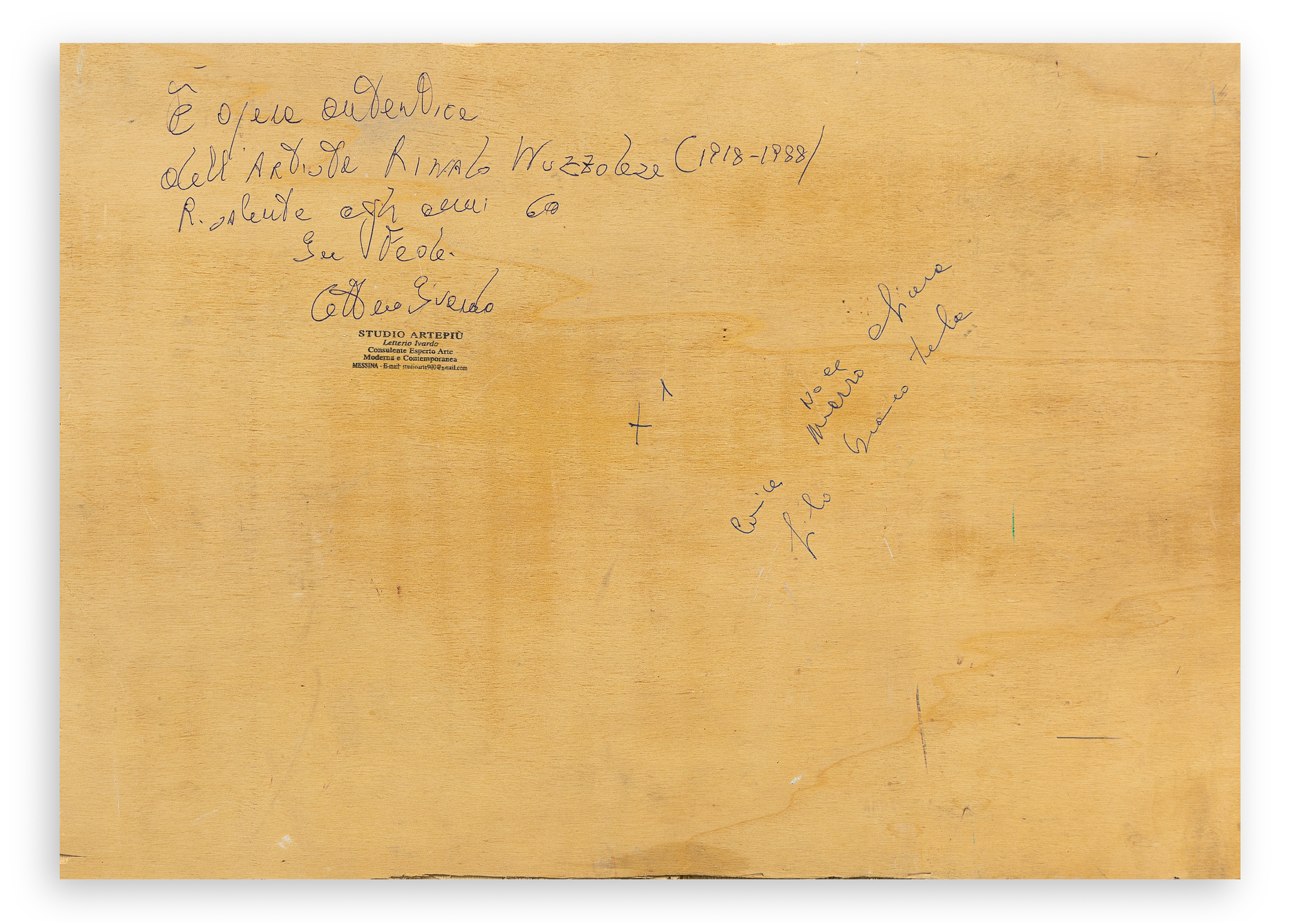 È opera autentica
dell'Artista Rinaldo Wuzzolese (1918-1988)
Risalente agli anni 60
In Fede.
Letterio Ivardo
STUDIO ARTEPIÙ
Letterio Ivardo
Consulente Esperto Arte
Moderna e Contemporanea
MESSINA - E-mail: studioarte940@gmail.com
+ 1
Noce
chiara
bianco tela
filo